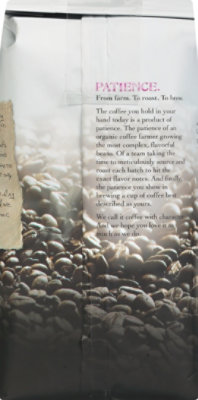 PATIENCE.
From farm. To roast. To brew.
The coffee you hold in your
hand today is a product of
patience. The patience of an
organic coffee farmer growing
the most complex, flavorful
beans. Of a team taking the
time to meticulously source and
roast each batch to hit the
exact flavor notes. And finally,
the patience you show in
brewing a cup of coffee best
described as yours.
We call it coffee with character.
And we hope you love it as
much as we do.